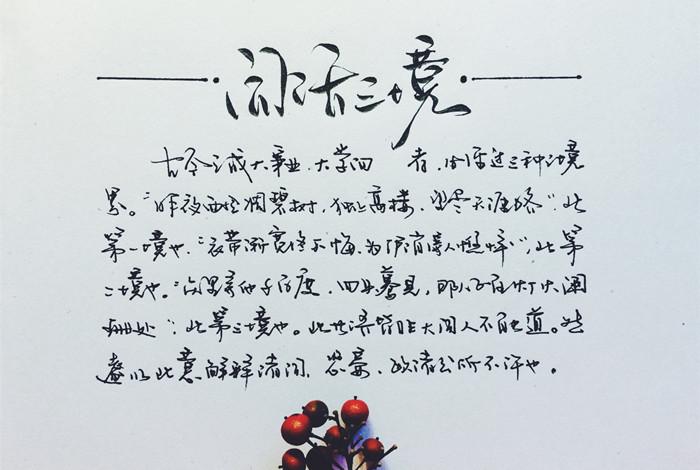 词话三境
古今之成大事业、大学问 者，必经过三种之境
界。“昨夜西风凋碧树，独上高楼，望尽天涯路”，此
第一境也。“衣带渐宽终不悔，为伊消得人憔悴”，此第
二境也。“众里寻他千百度，回头蓦见，那人正在灯火阑
珊处”，此第三境也。此等语皆非大词人不能道。然
遽以此意解释诸词，恐晏、欧诸公所不许也。